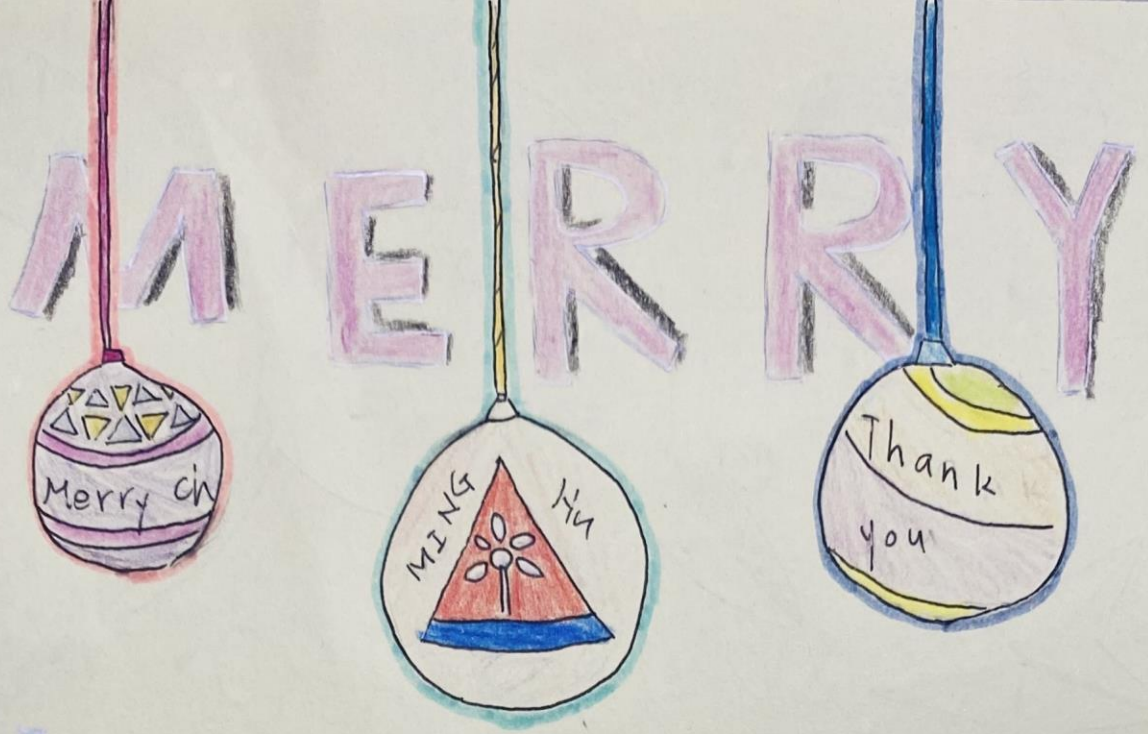 MERRY
Merry ch
MING
Jin
Thank
you